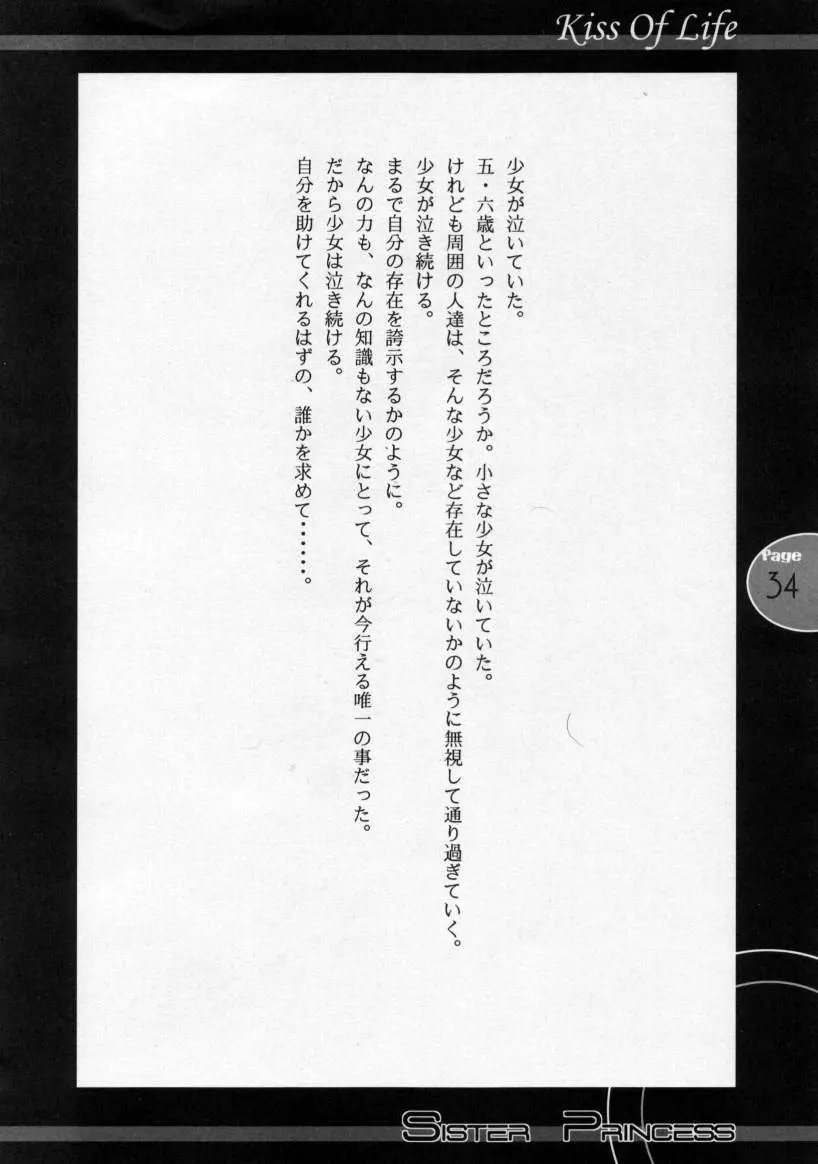 Kiss Of Life
少女が泣いていた。
五・六歳といったところだろうか。小さな少女が泣いていた。
けれども周囲の人達は、そんな少女など存在していないかのように無視して通り過ぎていく。
少女が泣き続ける。
まるで自分の存在を誇示するかのように。
なんの力も、なんの知識もない少女にとって、それが今行える唯一の事だった。
だから少女は泣き続ける。
自分を助けてくれるはずの、誰かを求めて……。
Page
34
SISTER PRINCESS